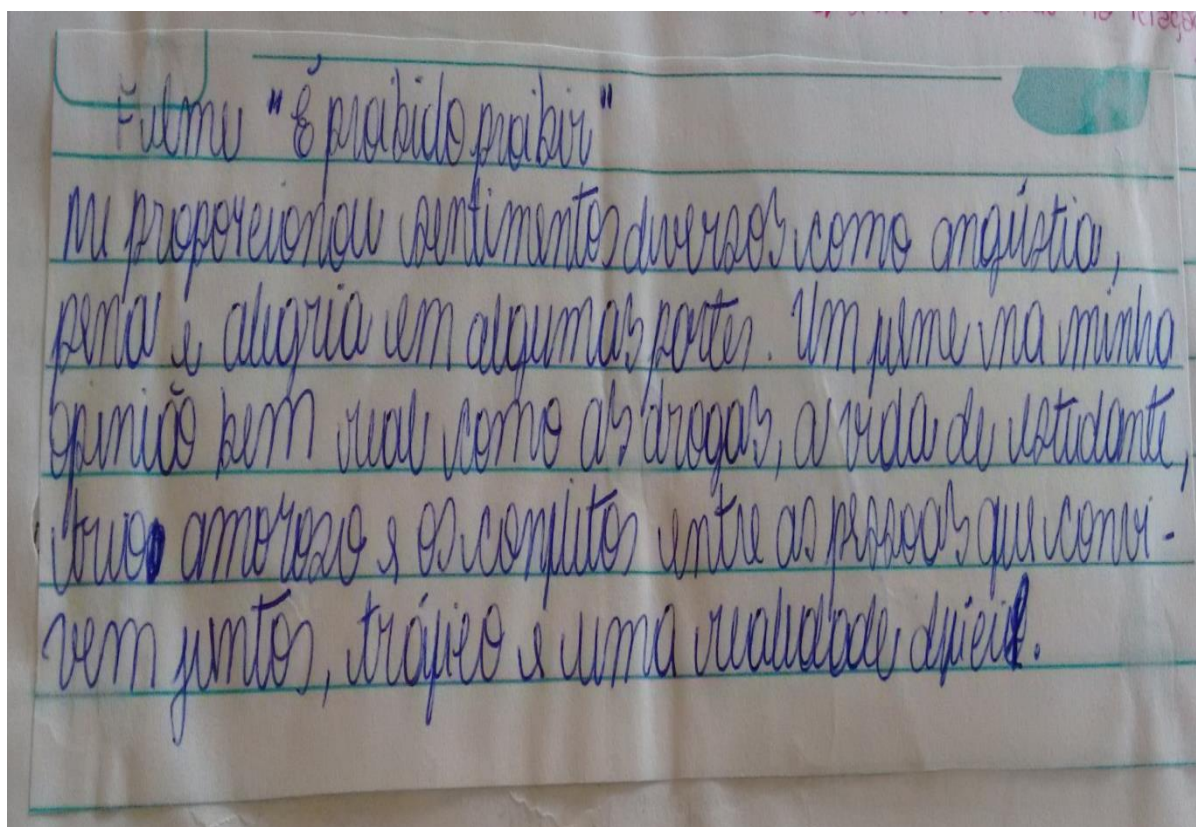 Filme "É proibido proibir"
me proporcionou sentimentos diversos como angústia,
pena e alegria em algumas partes. Um filme na minha
opinião bem real como as drogas, a vida de estudante,
trio amoroso e os conflitos entre as pessoas que convi-
vem juntos, tráfico e uma realidade difícil.